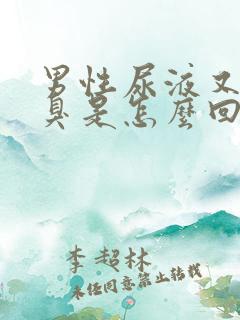 男性尿液又
臭是怎麼回
李超林
未经同意禁止转载